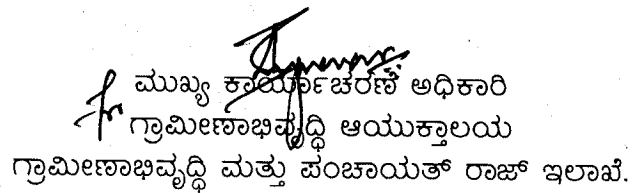 ಮುಖ್ಯ ಕಾರ್ಯಾಚರಣೆ ಅಧಿಕಾರಿ
ಗ್ರಾಮೀಣಾಭಿವೃದ್ಧಿ ಆಯುಕ್ತಾಲಯ
ಗ್ರಾಮೀಣಾಭಿವೃದ್ಧಿ ಮತ್ತು ಪಂಚಾಯತ್ ರಾಜ್ ಇಲಾಖೆ.